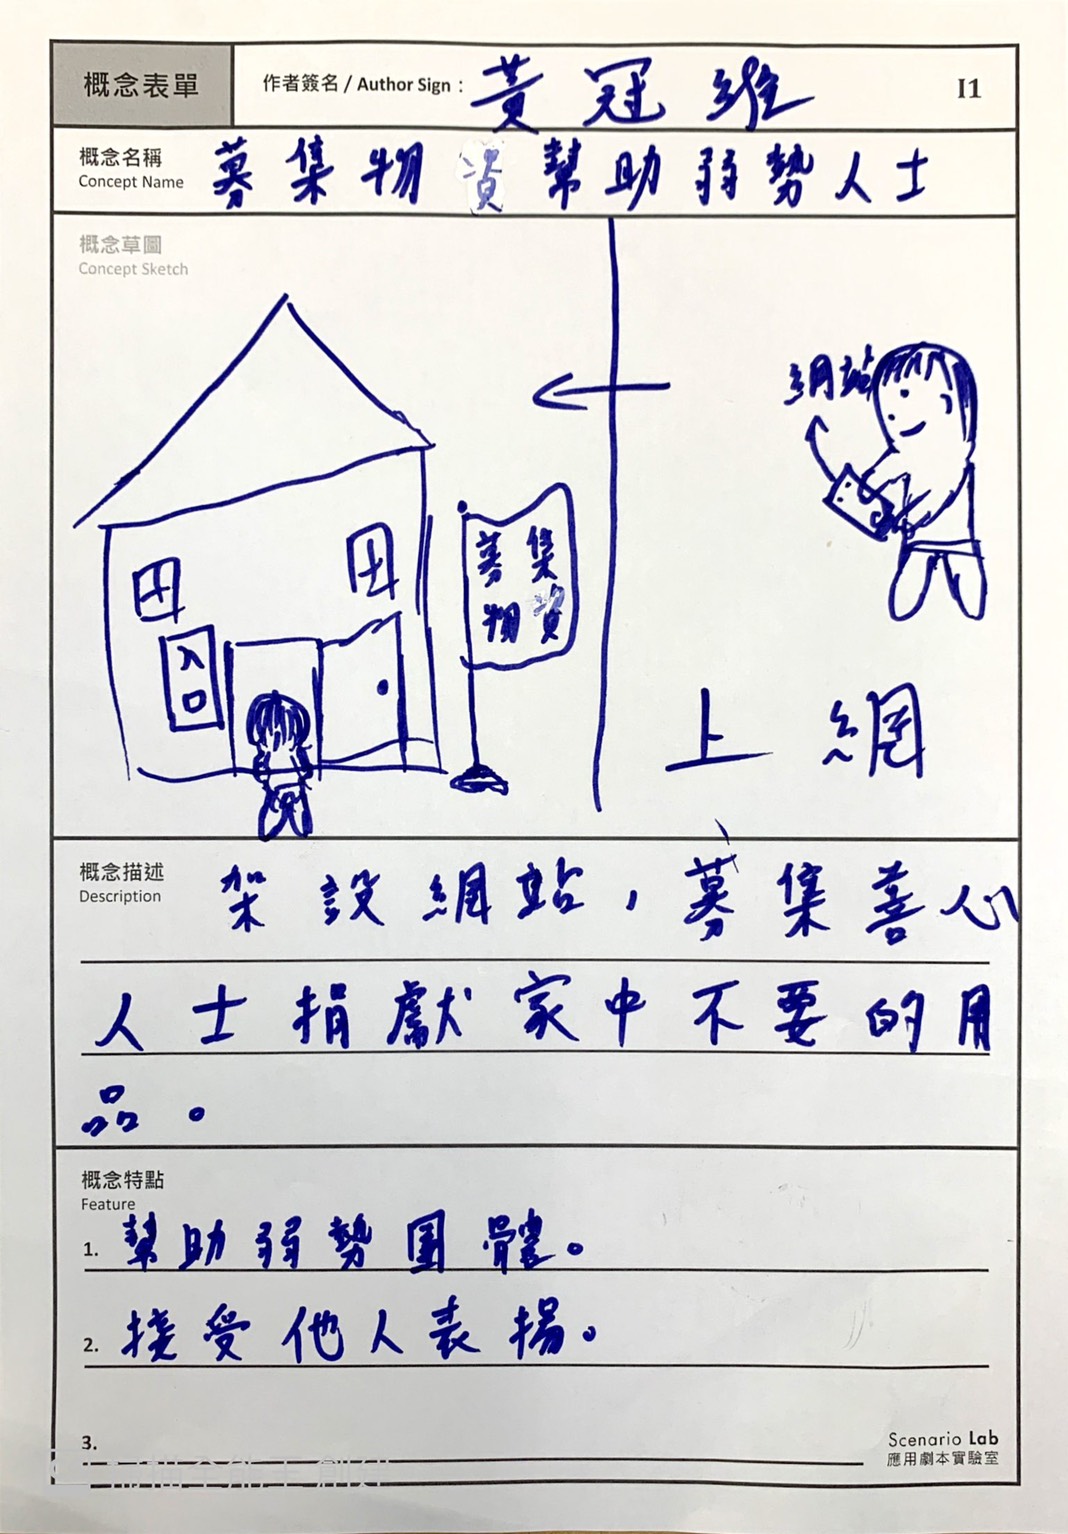 概念表單
作者簽名 / Author Sign : 黃冠維
I1
概念名稱
Concept Name
募集物資幫助弱勢人士
概念草圖
Concept Sketch
網站
募集
物資
入
口
上網
概念描述
Description
架設網站，募集善心
人士捐獻家中不要的用
品。
概念特點
Feature
1. 幫助弱勢團體。
2. 接受他人表揚。
3.
Scenario Lab
應用劇本實驗室